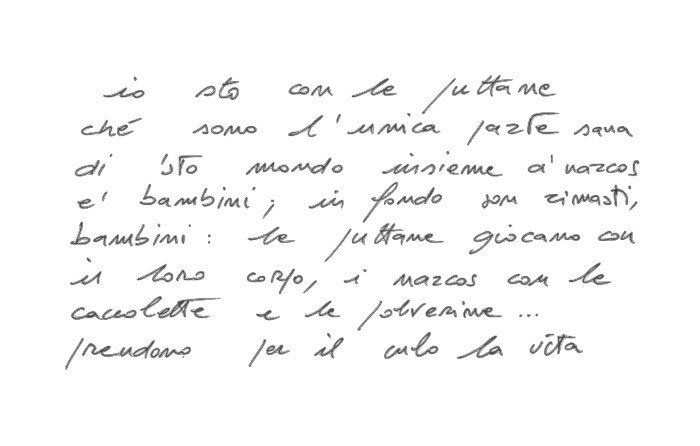 io sto con le puttane
ché sono l'unica parte sana
di 'sto mondo insieme a' narcos
e' bambini; in fondo son rimasti,
bambini: le puttane giocano con
il loro corpo, i narcos con le
caccolette e le polverine...
prendono per il culo la vita